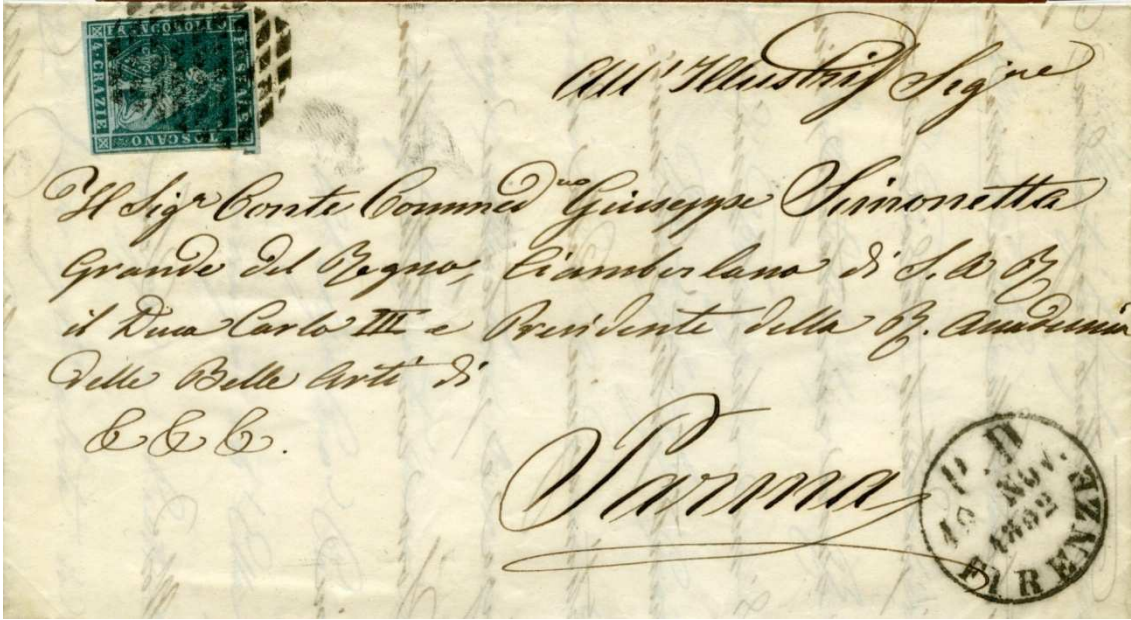 FRANCOBOLLO
POSTALE
TOSCANO
4. CRAZIE
All' Illustris Sigre
Il Sigr Conte Commedno Giuseppe Simonetta
Grande del Regno, Ciamberlano di S. A R
il Duca Carlo III e Presidente della R. Accademia
delle Belle Arti di
& & &.
Parma
P. D
NOV.
1852
FIRENZE